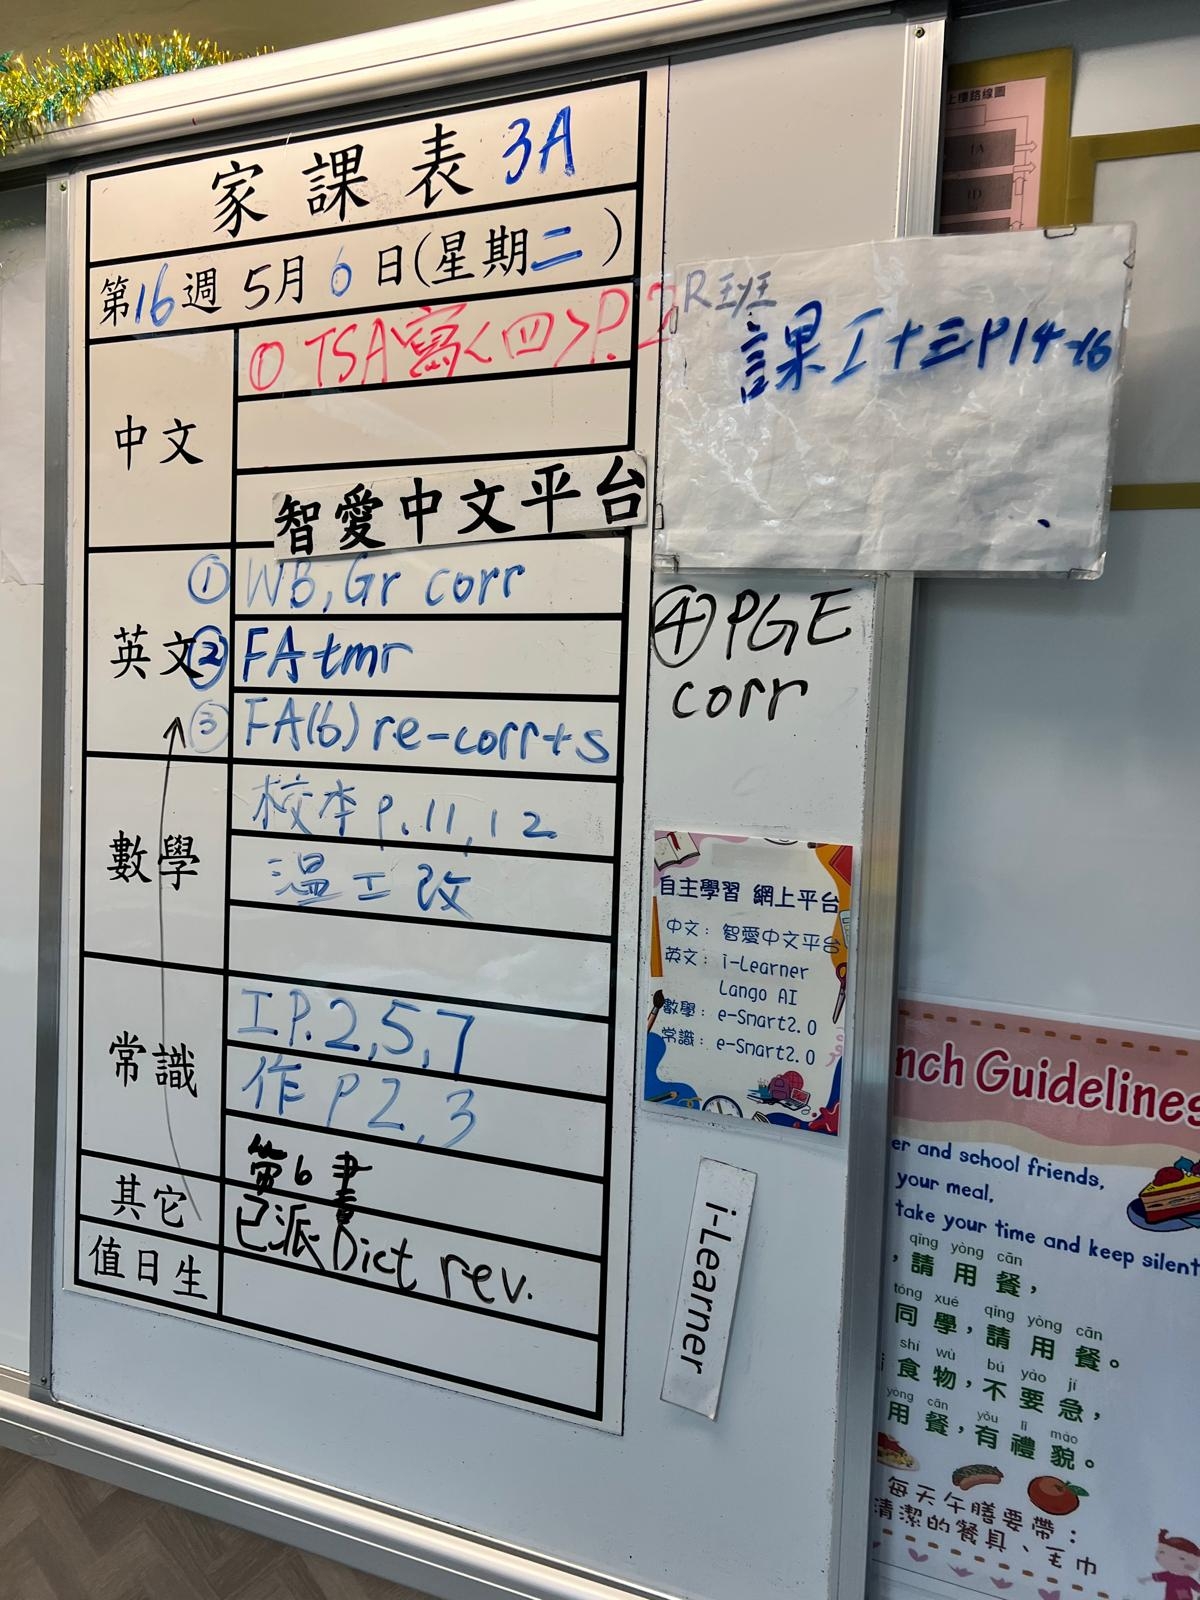 家課表 3A
第16週 5月6日(星期二)
中文
① TSA寫<四>P.2
智愛中文平台
英文
① WB, Gr corr
② FA tmr
③ FA(6) re-corr+s
數學
校本 p.11,12
溫工改
常識
工P.2,5,7
作P2,3
第6書
其它
已派Dict rev.
值日生
R班
課工十三P14-16
④PGE
corr
自主學習 網上平台
中文：智愛中文平台
英文：i-Learner
Lango AI
數學：e-Smart2.0
常識：e-Smart2.0
i-Learner
上樓路線圖
1A
1D
nch Guidelines
er and school friends,
your meal,
take your time and keep silent
qǐng yòng cān
，請用餐，
tóng xué qǐng yòng cān
同學，請用餐。
shí wù bú yào jí
食物，不要急，
yòng cān yǒu lǐ mào
用餐，有禮貌。
每天午膳要帶：
清潔的餐具、毛巾